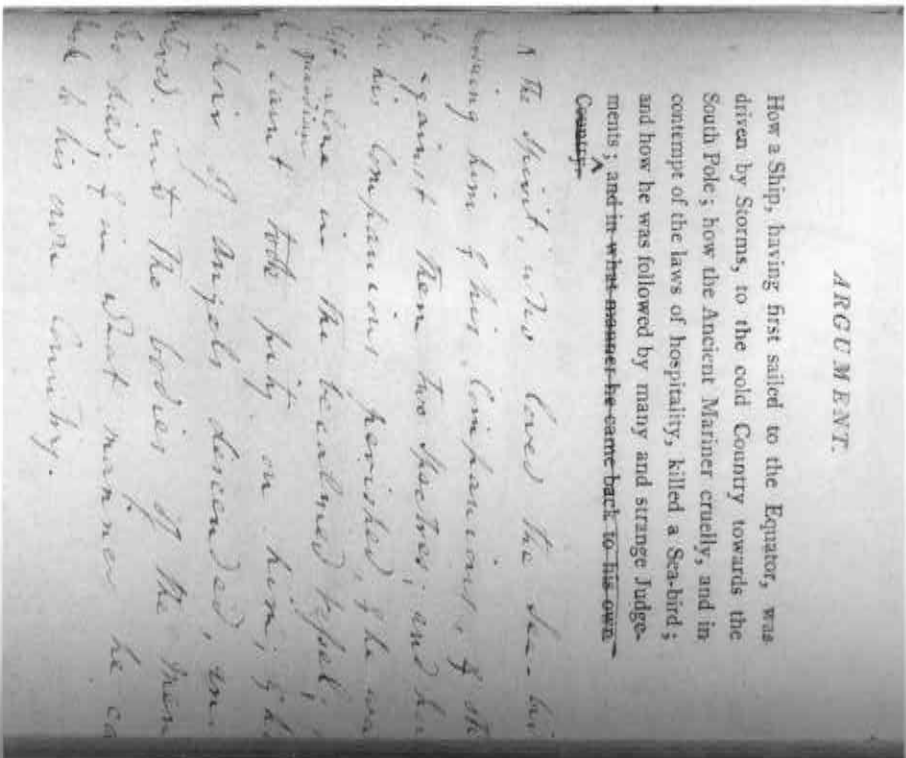 ARGUMENT.
How a Ship, having first sailed to the Equator, was
driven by Storms, to the cold Country towards the
South Pole; how the Ancient Mariner cruelly, and in
contempt of the laws of hospitality, killed a Sea-bird;
and how he was followed by many and strange Judge-
ments; and in what manner he came back to his own
Country.
The Spirit, who loved the Sea-bi
him & his Companions, & sti
against them two Spectres; and ho
his Companions perished, & he wa
left alone in the becalmed Vessel;
guardian
Saint took pity on him; & ho
a choir of Angels descended, en-
tered into the bodies of the men
who died; & in what manner he ca
back to his own Country.